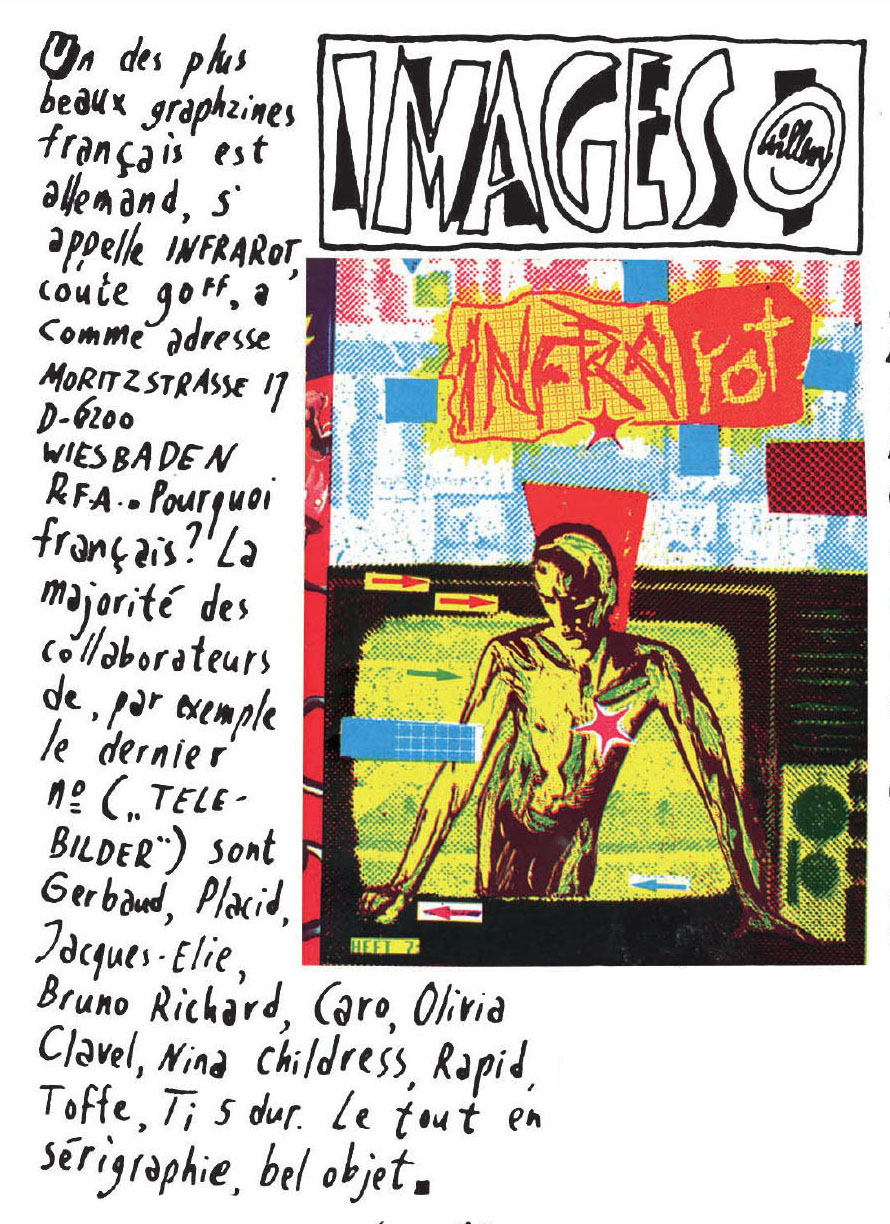 Un des plus
beaux graphzines
français est
allemand, s'
appelle INFRAROT,
coute 90FF, a
comme adresse
MORITZSTRASSE 17
D-6200
WIESBADEN
R.F.A... Pourquoi
français? La
majorité des
collaborateurs
de, par exemple
le dernier
nº („TELE-
BILDER") sont
Gerbaud, Placid,
Jacques-Elie,
Bruno Richard, Caro, Olivia
Clavel, Nina Childress, Rapid,
Toffe, Ti 5 dur. Le tout en
sérigraphie, bel objet.
IMAGES
Willem
INFRArot
HEFT 7